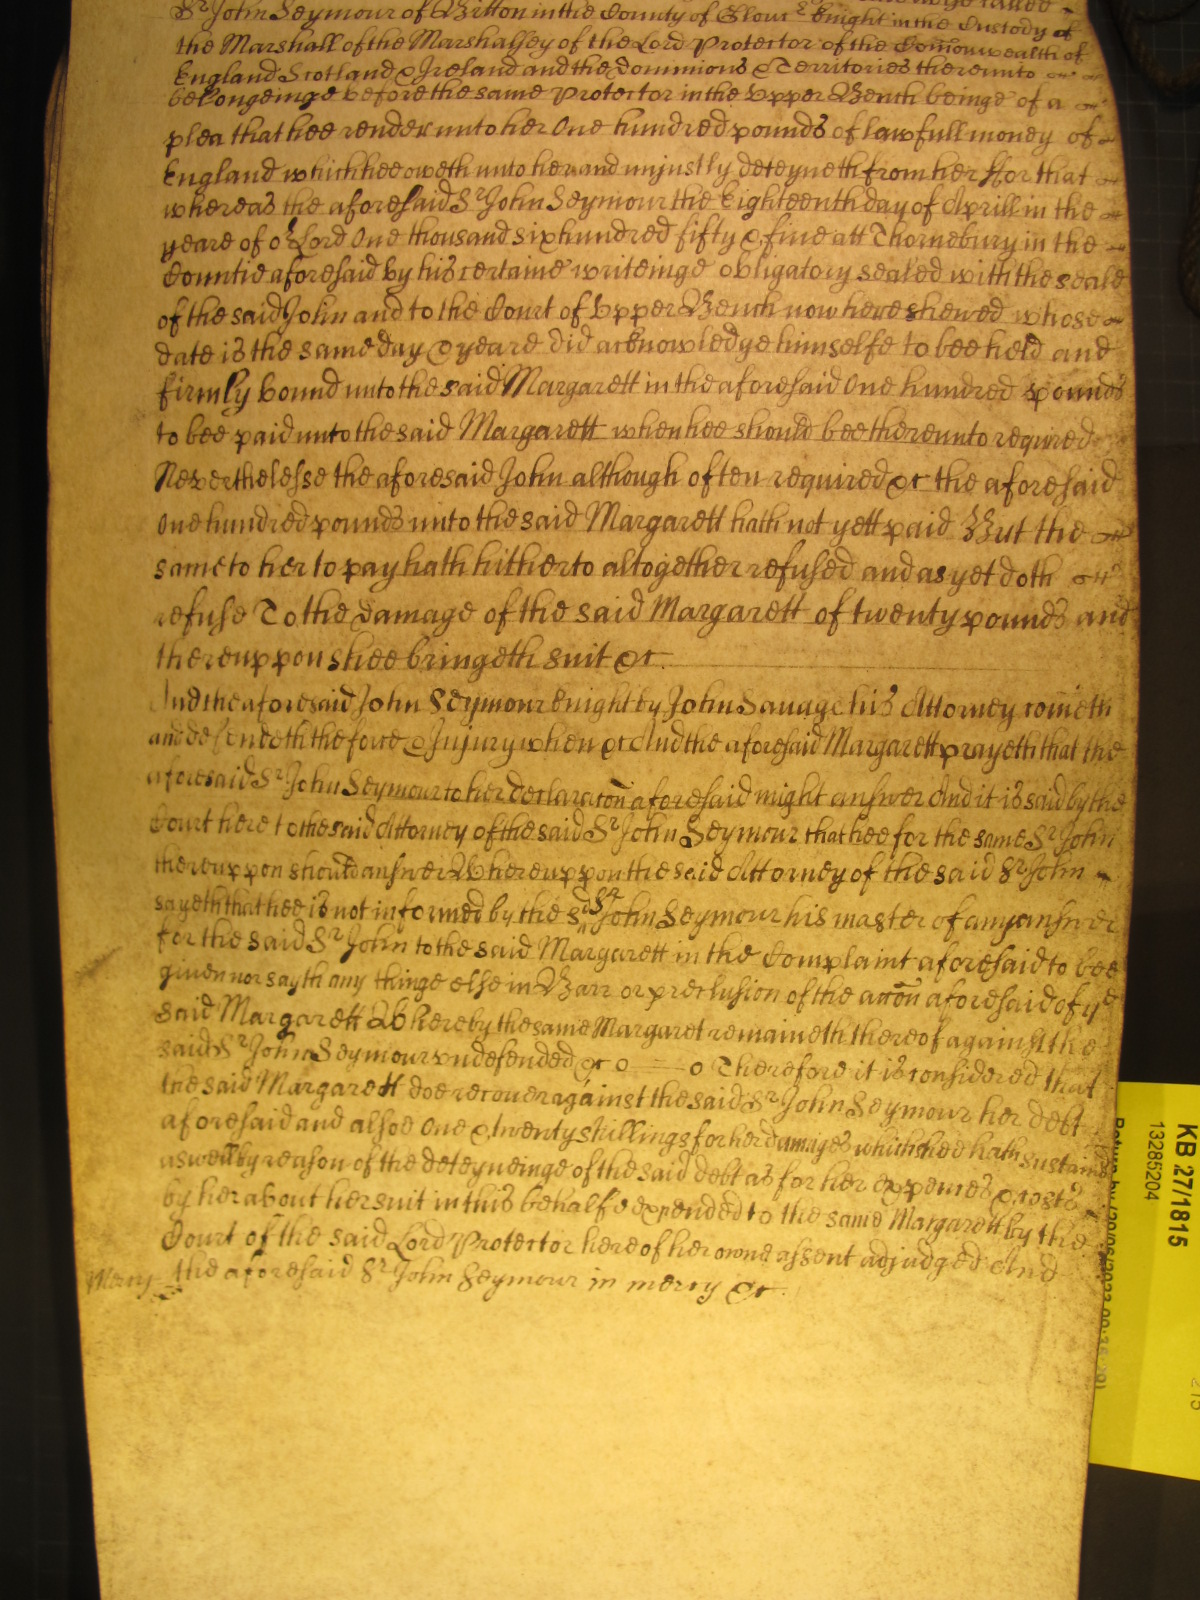 Sr John Seymour of Bitton in the County of Glouc knight in the Custody of
the Marshall of the Marshalsey of the Lord Protector of the Comonwealth of
England Scotland & Ireland and the Dominions & Territories thereunto
belongeinge before the same Protector in the Upper Bench beinge of a
plea that hee render unto her One hundred pounds of lawfull money of
England which hee oweth unto her and unjustly deteyneth from her ffor that
whereas the aforesaid Sr John Seymour the Eighteenth day of Aprill in the
yeare of or Lord One thousand six hundred fifty & five att Thornebury in the
Countie aforesaid by his certaine writeinge obligatory sealed with the seale
of the said John and to the Court of Upper Bench now here shewed whose
date is the same day & yeare did acknowledge himselfe to bee held and
firmly bound unto the said Margarett in the aforesaid One hundred pounds
to bee paid unto the said Margarett when hee should bee thereunto required
Neverthelesse the aforesaid John although often required &c the aforesaid
One hundred pounds unto the said Margarett hath not yett paid But the
same to her to pay hath hitherto altogether refused and as yet doth
refuse To the damage of the said Margarett of twenty pounds and
thereuppon shee bringeth suit &c
And the aforesaid John Seymour knight by John Savage his Attorney cometh
and defendeth the force & Injury when &c And the aforesaid Margarett prayeth that the
aforesaid Sr John Seymour to her declaracon aforesaid might answer And it is said by the
Court here to the said Attorney of the said Sr John Seymour that hee for the same Sr John
thereuppon should answer Whereuppon the said Attorney of the said Sr John
sayeth that hee is not informed by the sd Sr John Seymour his master of any answer
for the said Sr John to the said Margarett in the Complaint aforesaid to bee
given nor sayth any thinge else in Barr or preclusion of the accon aforesaid of ye
said Margarett Whereby the same Margaret remaineth thereof against the
said Sr John Seymour undefended &c o == o Therefore it is considered that
the said Margarett doe recover against the said Sr John Seymour her debt
aforesaid and alsoe One & twenty shillings for her damages which shee hath sustain
aswell by reason of the deteyneinge of the said debt as for her expences & costs
by her about her suit in this behalfe expended to the same Margarett by the
Court of the said Lord Protector here of her owne assent adjudged And
Mercy the aforesaid Sr John Seymour in mercy &c
KB 27/1815
13285204
215